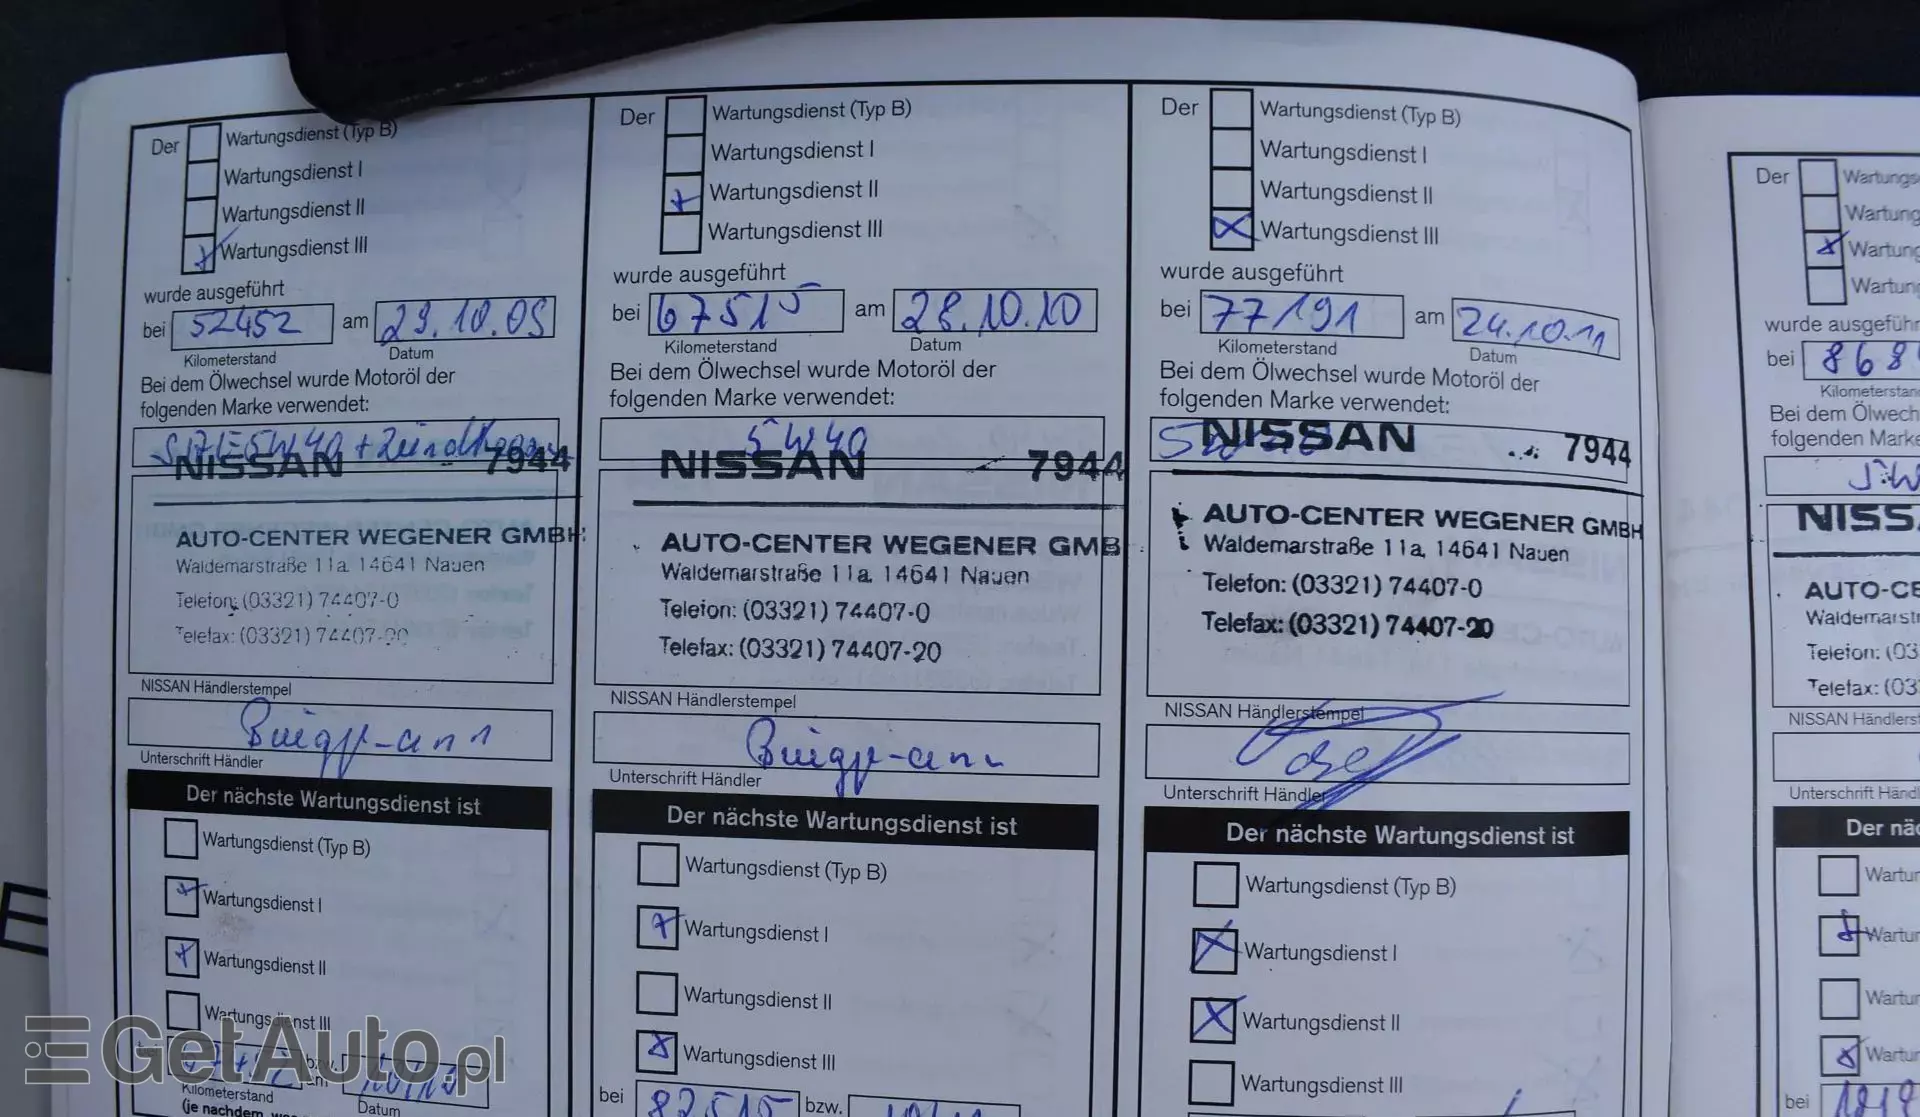 Der
Wartungsdienst (Typ B)
Wartungsdienst I
Wartungsdienst II
Wartungsdienst III
wurde ausgeführt
bei 52452 am 29.10.09
Kilometerstand Datum
Bei dem Ölwechsel wurde Motoröl der
folgenden Marke verwendet:
5W40 +
NISSAN 7944
AUTO-CENTER WEGENER GMBH
Waldemarstraße 11a, 14641 Nauen
Telefon: (03321) 74407-0
Telefax: (03321) 74407-20
NISSAN Händlerstempel
Unterschrift Händler
Der nächste Wartungsdienst ist
Wartungsdienst (Typ B)
Wartungsdienst I
Wartungsdienst II
Wartungsdienst III
bzw.
am
Kilometerstand
Datum
(je nachdem
Der
Wartungsdienst (Typ B)
Wartungsdienst I
Wartungsdienst II
Wartungsdienst III
wurde ausgeführt
bei 67515 am 28.10.10
Kilometerstand Datum
Bei dem Ölwechsel wurde Motoröl der
folgenden Marke verwendet:
5W40
NISSAN 7944
AUTO-CENTER WEGENER GMB
Waldemarstraße 11a, 14641 Nauen
Telefon: (03321) 74407-0
Telefax: (03321) 74407-20
NISSAN Händlerstempel
Unterschrift Händler
Der nächste Wartungsdienst ist
Wartungsdienst (Typ B)
Wartungsdienst I
Wartungsdienst II
Wartungsdienst III
bei 82515 bzw.
Der
Wartungsdienst (Typ B)
Wartungsdienst I
Wartungsdienst II
Wartungsdienst III
wurde ausgeführt
bei 77191 am 24.10.11
Kilometerstand Datum
Bei dem Ölwechsel wurde Motoröl der
folgenden Marke verwendet:
NISSAN 7944
AUTO-CENTER WEGENER GMBH
Waldemarstraße 11a, 14641 Nauen
Telefon: (03321) 74407-0
Telefax: (03321) 74407-20
NISSAN Händlerstempel
Unterschrift Händler
Der nächste Wartungsdienst ist
Wartungsdienst (Typ B)
Wartungsdienst I
Wartungsdienst II
Wartungsdienst III
Der
Wartungs
Wartung
Wartung
Wartun
wurde ausgeführ
bei 868
Kilometerstan
Bei dem Ölwech
folgenden Marke
5W
NISS
AUTO-CE
Waldemarst
Telefon: (03
Telefax: (03
NISSAN Händlerst
Unterschrift Händ
Der näc
Wartur
Wartur
Wartur
Wartur
bei
GetAuto.pl